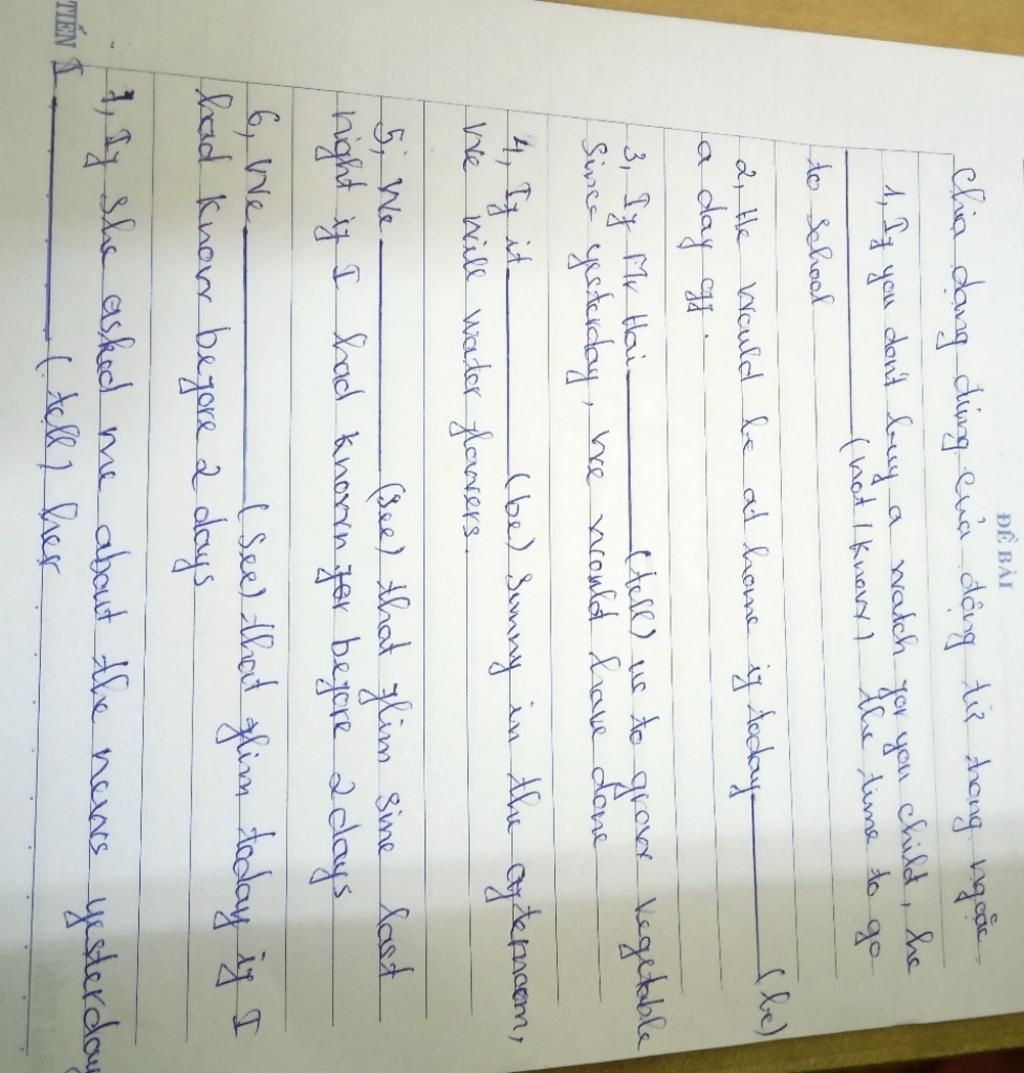 ĐỀ BÀI
Chia dạng đúng của động từ trong ngoặc
1, If you don't buy a watch for you child, he
(not / know) the time to go
to school
2, He would be at home if today (be)
a day off.
3, If Mr Hai (tell) us to grow vegetable
since yesterday, we would have done
4, If it (be) sunny in the afternoom,
We will water flowers.
5, We (see) that film sine last
night if I had known before 2 days
6, We (see) that film today if I
had know before 2 days
7, If she asked me about the news yesterday
I (tell) her
TIẾN